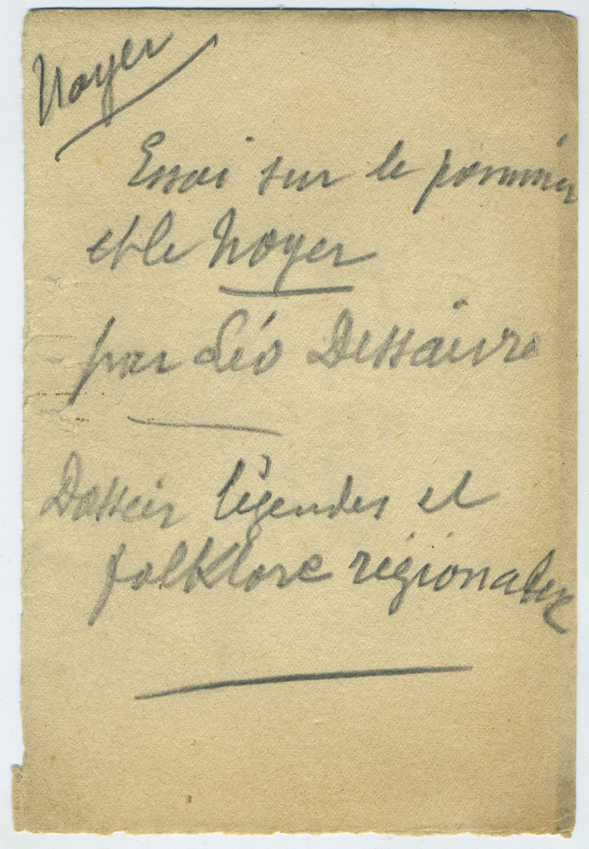 Noyer
Essai sur le pommier
et le Noyer
par Léo Dessaivre
Dossier légendes et
folklore régionaux